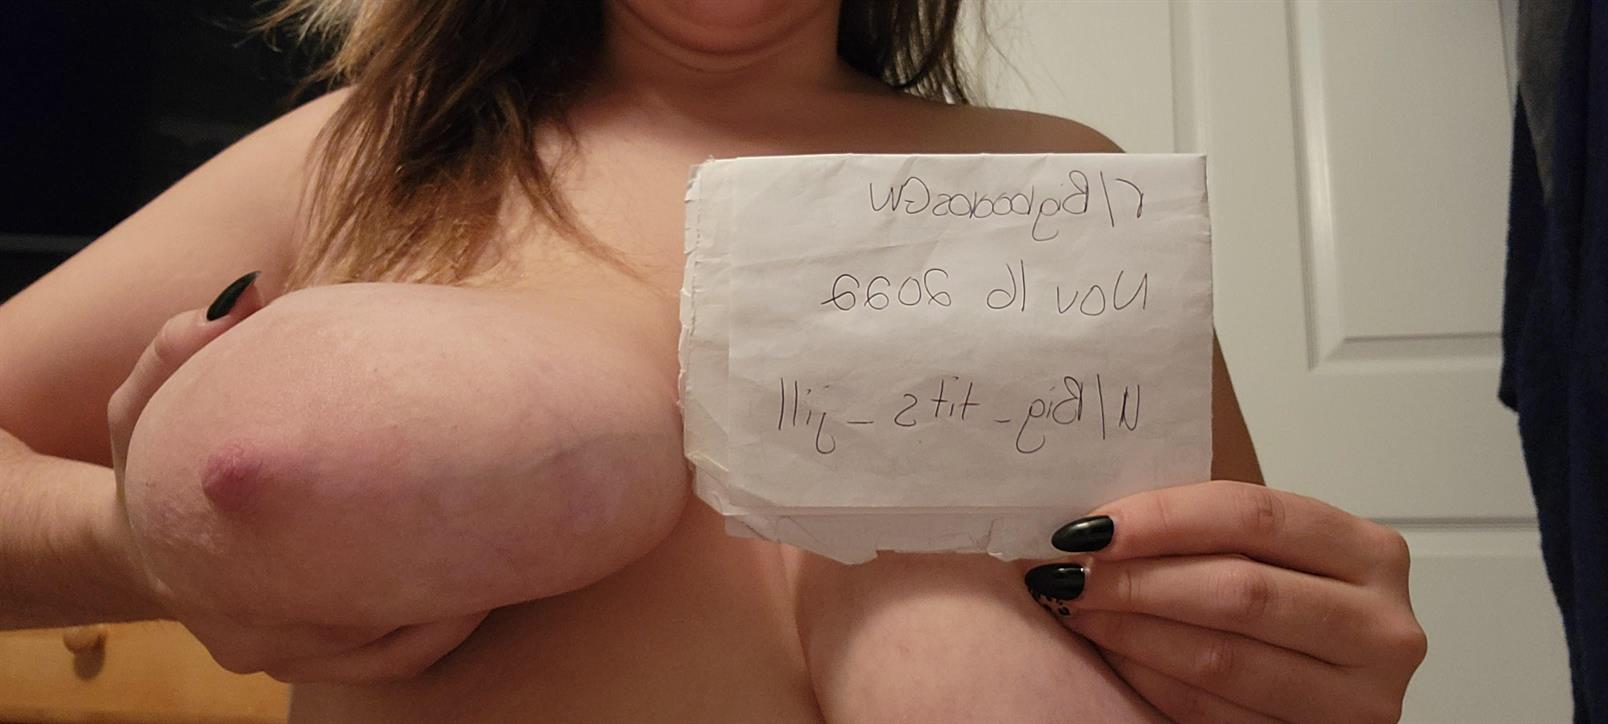 r/BigboobsGW
Nov 16 2022
u/Big_tits_jill